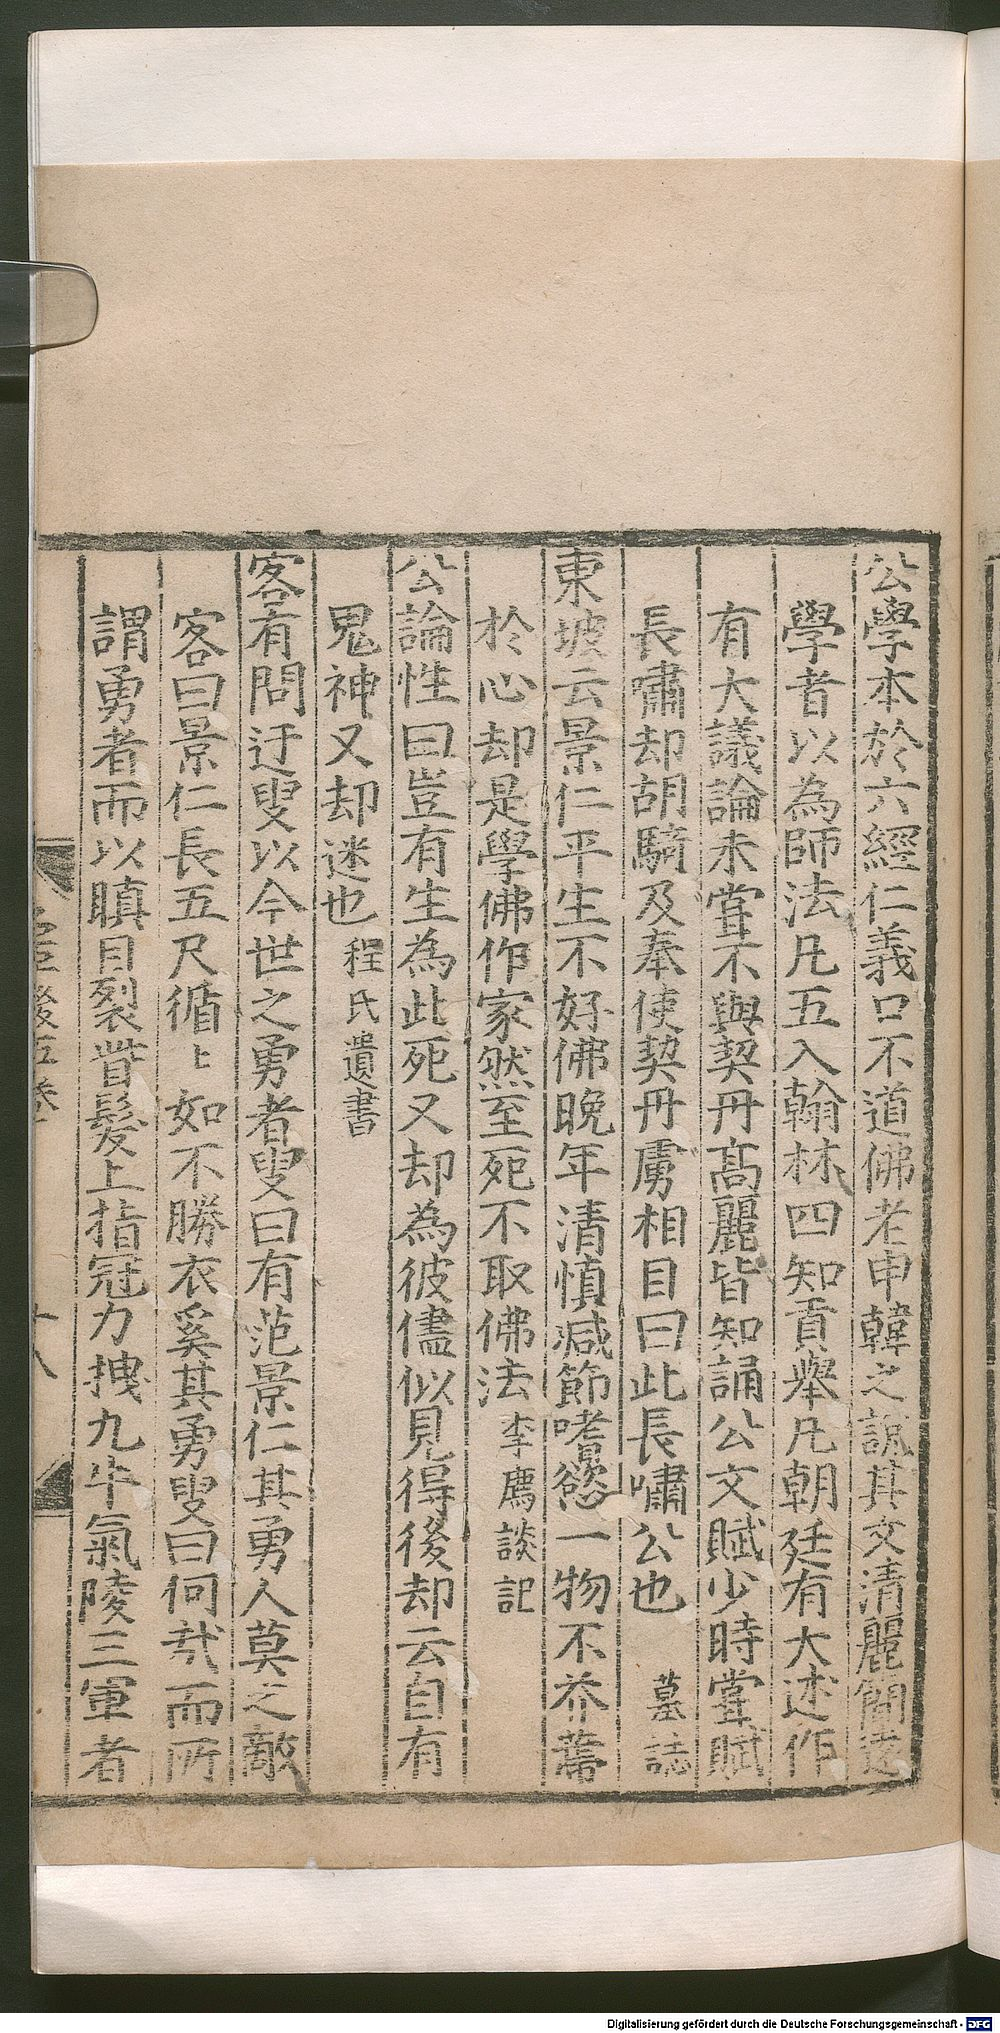 公學本於六經仁義口不道佛老申韓之說其文清麗簡遠
學者以為師法凡五入翰林四知貢舉凡朝廷有大述作
有大議論未甞不與契丹高麗皆知誦公文賦少時甞賦
長嘯却胡騎及奉使契丹虜相目曰此長嘯公也 墓誌
東坡云景仁平生不好佛晚年清慎减節嗜慾一物不芥蔕
於心却是學佛作家然至死不取佛法 李廌談記
公論性曰豈有生為此死又却為彼儘似見得後却云自有
鬼神又却迷也 程氏遺書
客有問迂叟以今世之勇者叟曰有范景仁其勇人莫之敵
客曰景仁長五尺循〻如不勝衣奚其勇叟曰何㦲而所
謂勇者而以瞋目裂眥髮上指冠力拽九牛氣陵三軍者
後五卷
十八
Digitalisierung gefördert durch die Deutsche Forschungsgemeinschaft - DFG